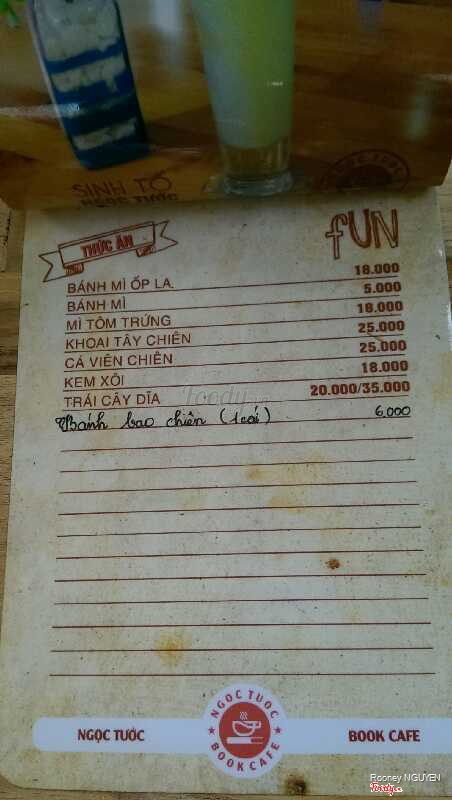 SINH TỐ
NGỌC TƯỚC
fUN
THỨC ĂN
BÁNH MÌ ỐP LA 18.000
BÁNH MÌ 5.000
MÌ TÔM TRỨNG 18.000
KHOAI TÂY CHIÊN 25.000
CÁ VIÊN CHIÊN 25.000
KEM XÔI 18.000
TRÁI CÂY DĨA 20.000/35.000
Bánh bao chiên (1 cái) 6,000
Foody
NGỌC TƯỚC
NGOC TUOC
BOOK CAFE
BOOK CAFE
Rooney NGUYEN
Foody